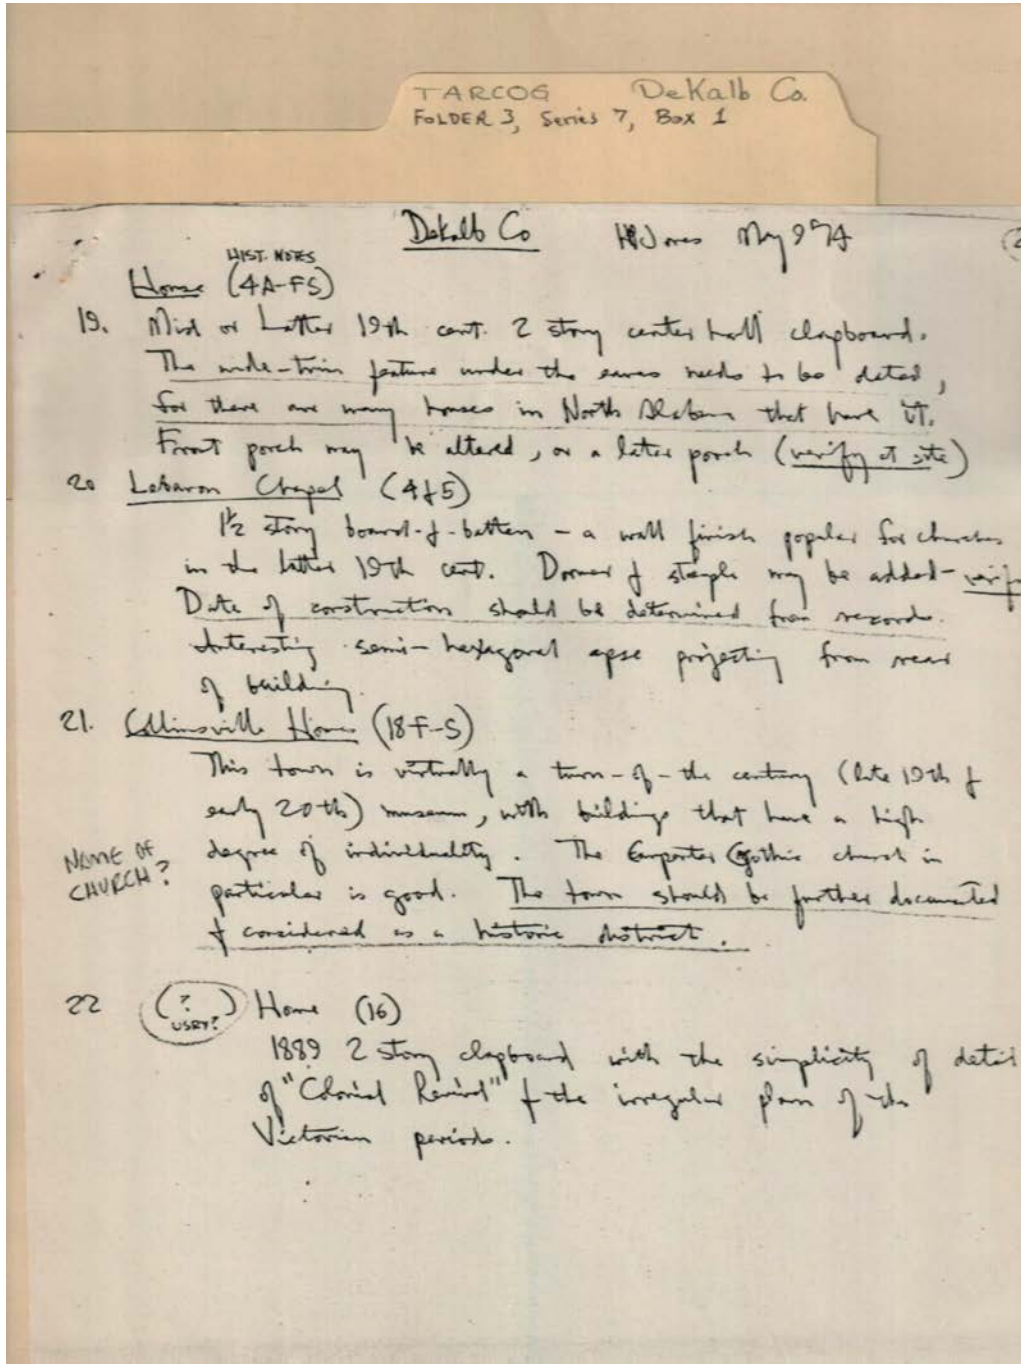 TARCOG DeKalb Co.
FOLDER 3, Series 7, Box 1
DeKalb Co HPJones May 9 '74 (2
HIST. NOTES
House (4A-FS)
19. Mid or Latter 19th cent. 2 story center hall clapboard.
The wide-trim feature under the eaves needs to be dated,
for there are many houses in North Alabama that have it.
Front porch may be altered, or a later porch (verify at site)
20 Lebaron Chapel (4f5)
1½ story board-&-batten - a wall finish popular for churches
in the latter 19th cent. Dormer & steeple may be added - verify
Date of construction should be determined from records.
Interesting semi-hexagonal apse projecting from rear
of building.
21. Collinsville Homes (18F-S)
This town is virtually a turn-of-the century (late 19th &
early 20th) museum, with buildings that have a high
degree of individuality. The Carpenter Gothic church in
NAME OF
CHURCH?
particular is good. The town should be further documented
& considered as a historic district.
22 (? USRY?) Home (16)
1889 2 story clapboard with the simplicity of detail
of "Colonial Revival" & the irregular plan of the
Victorian period.